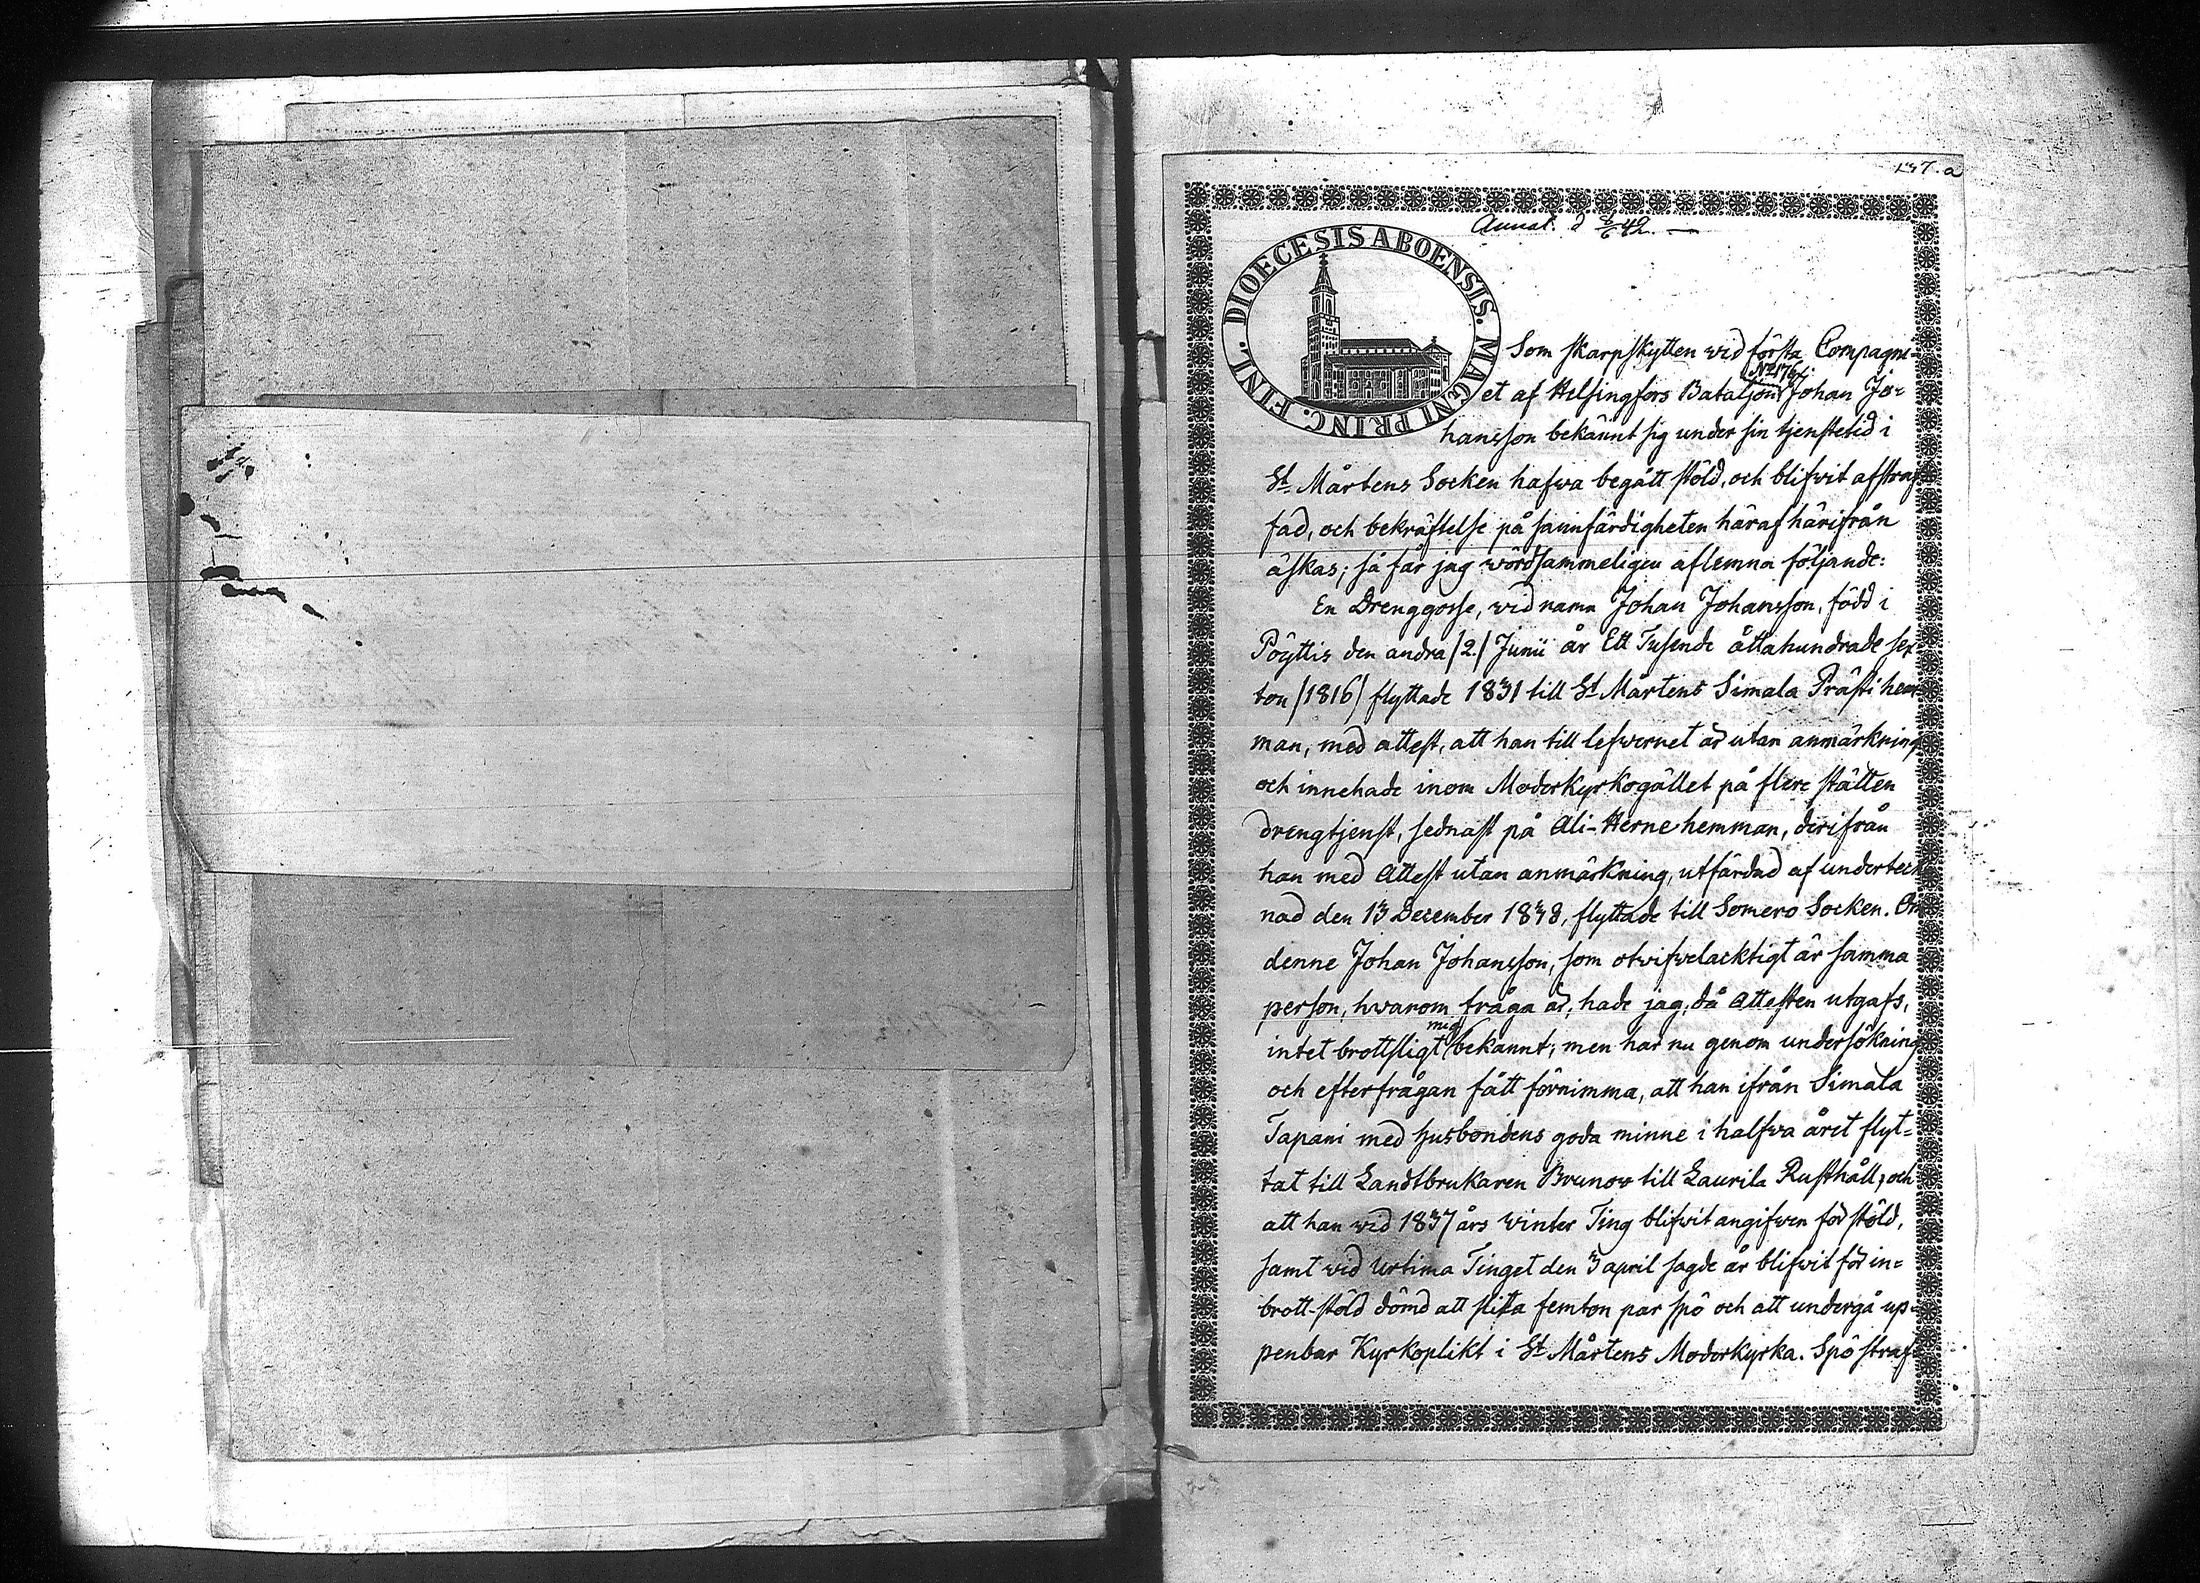 137.a
Annal. d 8/6 42. —
DIOECESIS ABOENSIS. MAGNI PRINC. FINL.
Som skarpskytten vid första Compagni-
et af Helsingfors Bataljon Johan Jo-
hansson bekännt sig under sin tjenstetid i
St. Mårtens Socken hafwa begått stöld, och blifwit afstraf
fad, och bekräftelse på sannfärdigheten häraf härifrån
äskas; så får jag wördsammeligen aflemna följande:
En Drenggosse, vid namn Johan Johansson, född i
Pöyttis den andra /2./ Junii år Ett Tusende åttahundrade sex
ton /1816/ flyttade 1831 till St Mårtens Simala Prästi hem
man, med attest, att han till lefwernet är utan anmärkning
och innehade inom Moderkyrkogället på flere ställen
drengtjenst, sednast på Ali-Herne hemman, derifrån
han med Attest utan anmärkning, utfärdad af underteck
nad den 13 December 1838, flyttade till Somero Socken. Om
denne Johan Johansson, som otwifwelacktigt är samma
person, hwarom fråga är, hade jag, då Attesten utgafs,
intet brottsligt mig bekannt; men har nu genom undersökning
och efterfrågan fått förnimma, att han ifrån Simala
Tapani med husbondens goda minne i halfwa året flyt-
tat till Landtbrukaren Brunow till Laurila Rusthåll, och
att han wid 1837 års Winter Ting blifwit angifwen för stöld,
samt wid Urtima Tinget den 3 april sagde år blifwit för in-
brott-stöld dömd att slita femton par spö och att undergå up-
penbar Kyrkoplikt i St Mårtens Moderkyrka. Spö straf